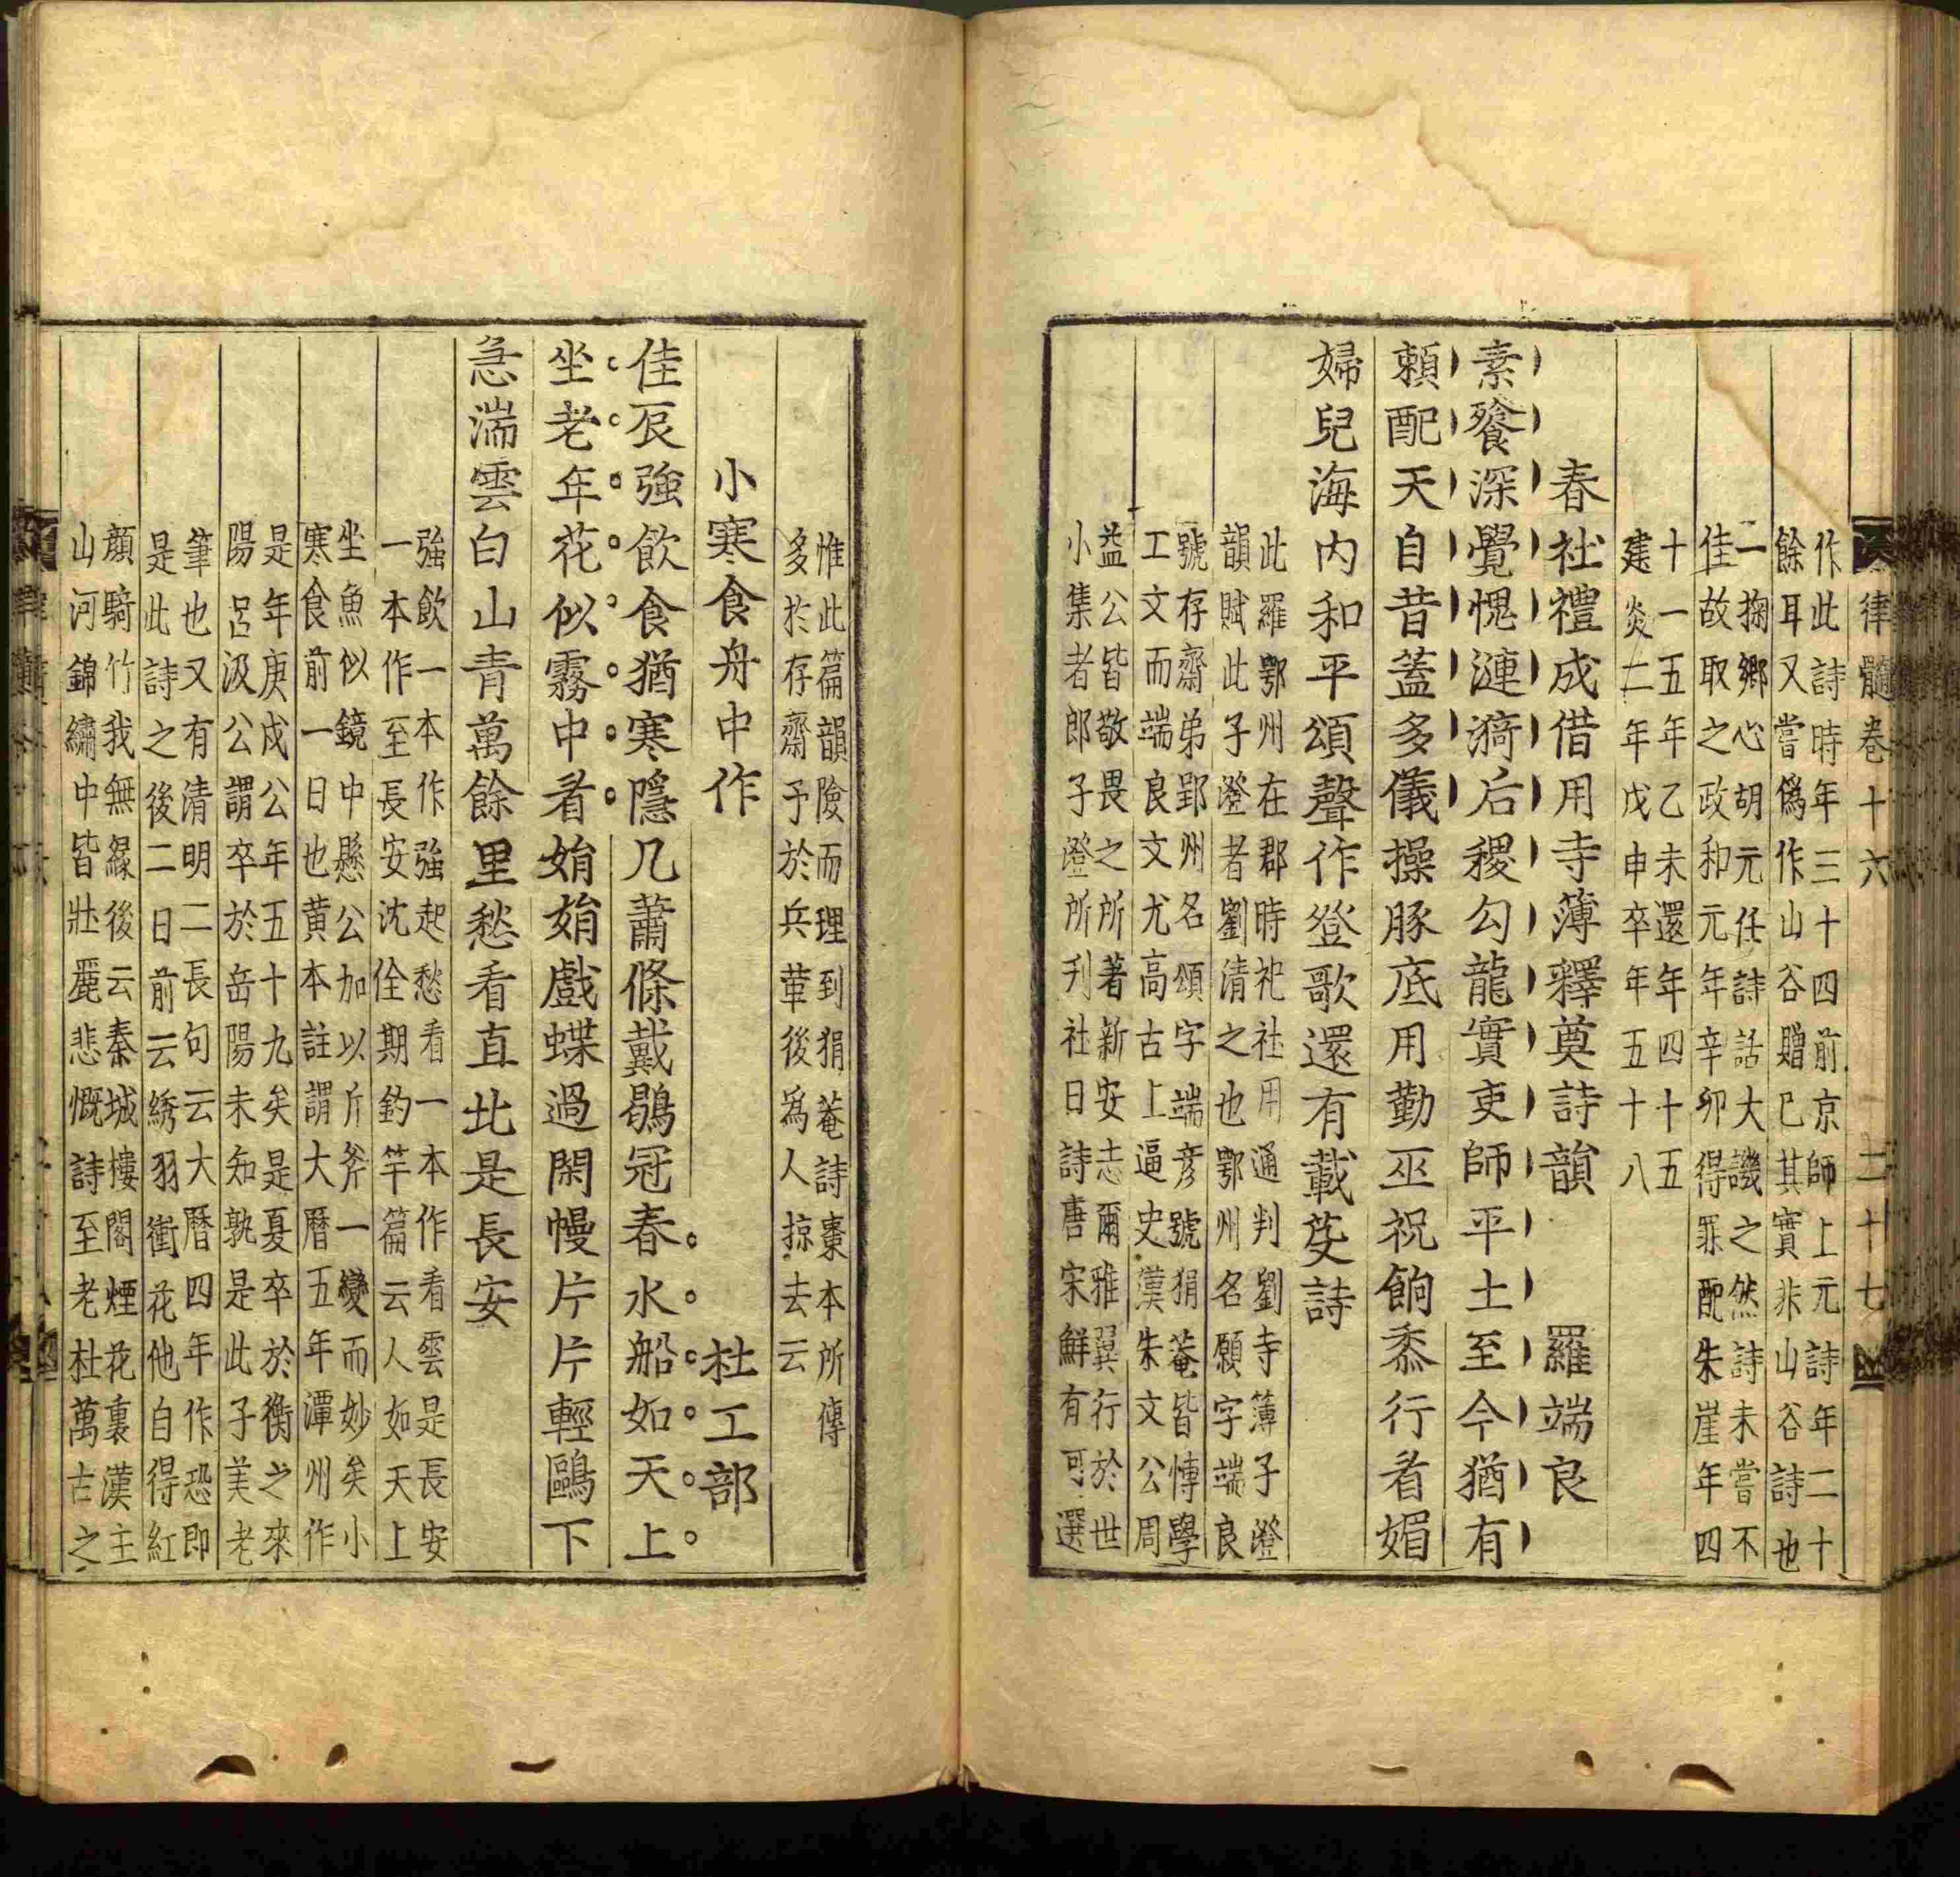 律髓卷十六 二十七
作此詩時年三十四前京師上元詩年二十
餘耳又嘗僞作山谷贈已其實非山谷詩也
一掬鄉心胡元任詩話大譏之然詩未嘗不
佳故取之政和元年辛卯得罪配朱崖年四
十一五年乙未還年四十五
建炎二年戊申卒年五十八
春社禮成借用寺薄釋奠詩韻 羅端良
素餐深覺愧漣漪后稷勾龍實吏師平土至今猶有
賴配天自昔蓋多儀操豚底用勤巫祝餉黍行看媚
婦兒海内和平頌聲作登歌還有載芟詩
此羅鄂州在郡時祀社用通判劉寺簿子澄
韻賦此子澄者劉清之也鄂州名願字端良
號存齋弟郢州名頌字端彦號狷菴皆慱學
工文而端良文尤高古上逼史漢朱文公周
益公皆敬畏之所著新安志爾雅翼行於世
小集者郎子澄所刋社日詩唐宋鮮有可選
惟此篇韻險而理到狷菴詩槀本所傳
多於存齋予於兵革後爲人掠去云
小寒食舟中作 杜工部
佳辰強飲食猶寒隱几蕭條戴鶡冠春水船如天上
坐老年花似霧中看娟娟戲蝶過閑幔片片輕鷗下
急湍雲白山青萬餘里愁看直北是長安
強飲一本作強起愁看一本作看雲是長安
一本作至長安沈佺期釣竿篇云人如天上
坐魚似鏡中懸公加以斤斧一變而妙矣小
寒食前一日也黄本註謂大曆五年潭州作
是年庚戌公年五十九矣是夏卒於衡之來
陽呂汲公謂卒於岳陽未知孰是此子美老
筆也又有清明二長句云大曆四年作恐即
是此詩之後二日前云綉羽衝花他自得紅
顔騎竹我無緣後云秦城樓閣煙花裏漢主
山河錦繡中皆壯麗悲慨詩至老杜萬古之